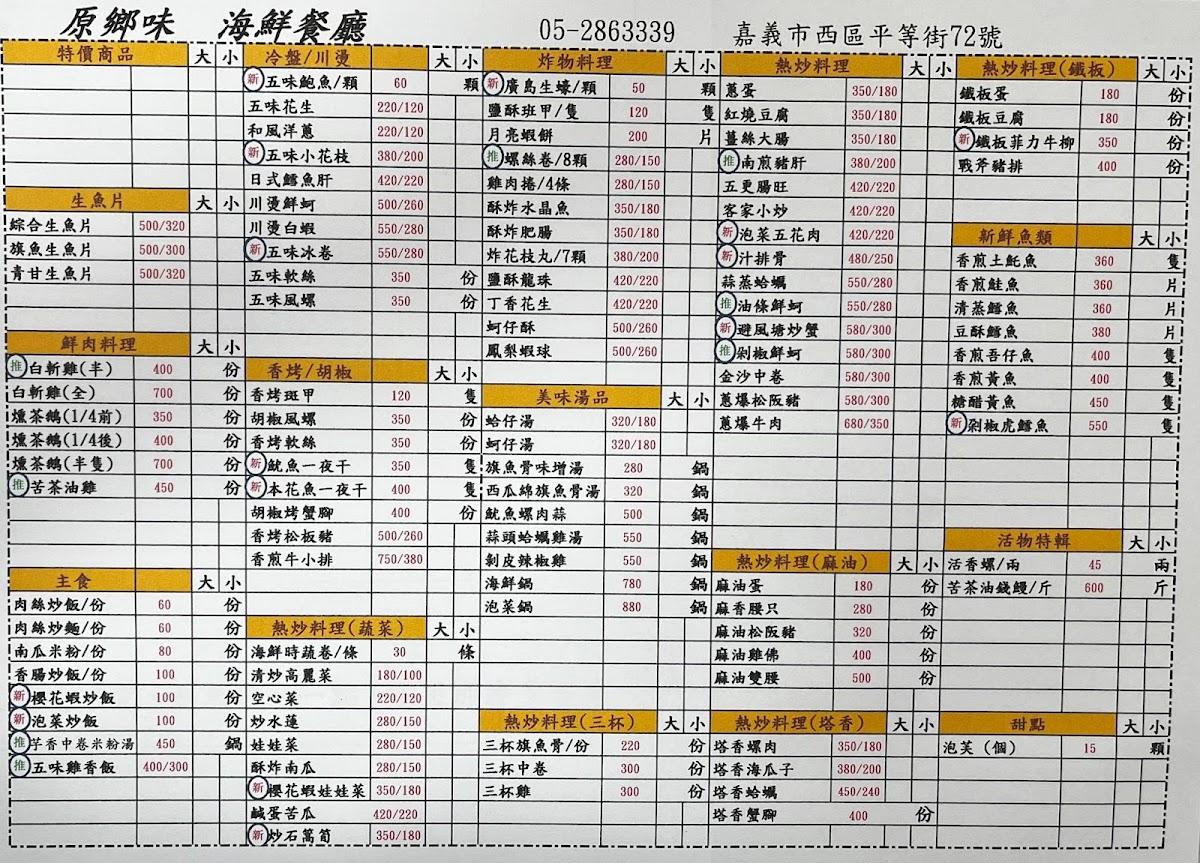 原鄉味 海鮮餐廳 05-2863339 嘉義市西區平等街72號
特價商品 大 小
生魚片 大 小
綜合生魚片 500/320
旗魚生魚片 500/300
青甘生魚片 500/320
鮮肉料理 大 小
推 白斬雞(半) 400 份
白斬雞(全) 700 份
燻茶鵝(1/4前) 350 份
燻茶鵝(1/4後) 400 份
燻茶鵝(半隻) 700 份
推 苦茶油雞 450 份
主食 大 小
肉絲炒飯/份 60 份
肉絲炒麵/份 60 份
南瓜米粉/份 80 份
香腸炒飯/份 100 份
新 櫻花蝦炒飯 100 份
新 泡菜炒飯 100 份
推 芋香中卷米粉湯 450 鍋
推 五味雞香飯 400/300
冷盤/川燙 大 小
新 五味鮑魚/顆 60 顆
五味花生 220/120
和風洋蔥 220/120
新 五味小花枝 380/200
日式鱈魚肝 420/220
川燙鮮蚵 500/260
川燙白蝦 550/280
新 五味冰卷 550/280
五味軟絲 350 份
五味風螺 350 份
香烤/胡椒 大 小
香烤斑甲 120 隻
胡椒風螺 350 份
香烤軟絲 350 份
新 魷魚一夜干 350 隻
新 本花魚一夜干 400 隻
胡椒烤蟹腳 400 份
香烤松板豬 500/260
香煎牛小排 750/380
熱炒料理(蔬菜) 大 小
海鮮時蔬卷/條 30 條
清炒高麗菜 180/100
空心菜 220/120
炒水蓮 280/150
娃娃菜 280/150
酥炸南瓜 280/150
新 櫻花蝦娃娃菜 350/180
鹹蛋苦瓜 420/220
新 炒石篙筍 350/180
炸物料理 大 小
新 廣島生蠔/顆 50 顆
鹽酥班甲/隻 120 隻
月亮蝦餅 200 片
推 螺絲卷/8顆 280/150
雞肉捲/4條 280/150
酥炸水晶魚 350/180
酥炸肥腸 350/180
炸花枝丸/7顆 380/200
鹽酥龍珠 420/220
丁香花生 420/220
蚵仔酥 500/260
鳳梨蝦球 500/260
美味湯品 大 小
蛤仔湯 320/180
蚵仔湯 320/180
旗魚骨味增湯 280 鍋
西瓜綿旗魚骨湯 320 鍋
魷魚螺肉蒜 500 鍋
蒜頭蛤蠣雞湯 550 鍋
剝皮辣椒雞 550 鍋
海鮮鍋 780 鍋
泡菜鍋 880 鍋
熱炒料理(三杯) 大 小
三杯旗魚骨/份 220 份
三杯中卷 300 份
三杯雞 300 份
熱炒料理 大 小
蔥蛋 350/180
紅燒豆腐 350/180
薑絲大腸 350/180
推 南煎豬肝 380/200
五更腸旺 420/220
客家小炒 420/220
新 泡菜五花肉 420/220
新 汁排骨 480/250
蒜蒸蛤蠣 550/280
推 油條鮮蚵 550/280
新 避風塘炒蟹 580/300
推 剁椒鮮蚵 580/300
金沙中卷 580/300
蔥爆松阪豬 580/300
蔥爆牛肉 680/350
熱炒料理(麻油) 大 小
麻油蛋 180 份
麻香腰只 280 份
麻油松阪豬 320 份
麻油雞佛 400 份
麻油雙腰 500 份
熱炒料理(塔香) 大 小
塔香螺肉 350/180
塔香海瓜子 380/200
塔香蛤蠣 450/240
塔香蟹腳 400 份
熱炒料理(鐵板) 大 小
鐵板蛋 180 份
鐵板豆腐 180 份
新 鐵板菲力牛柳 350 份
戰斧豬排 400 份
新鮮魚類 大 小
香煎土魠魚 360 隻
香煎鮭魚 360 片
清蒸鱈魚 360 片
豆酥鱈魚 380 片
香煎吾仔魚 400 隻
香煎黃魚 400 隻
糖醋黃魚 450 隻
新 剁椒虎鱈魚 550 隻
活物特輯 大 小
活香螺/兩 45 兩
苦茶油錢鰻/斤 600 斤
甜點 大 小
泡芙(個) 15 顆